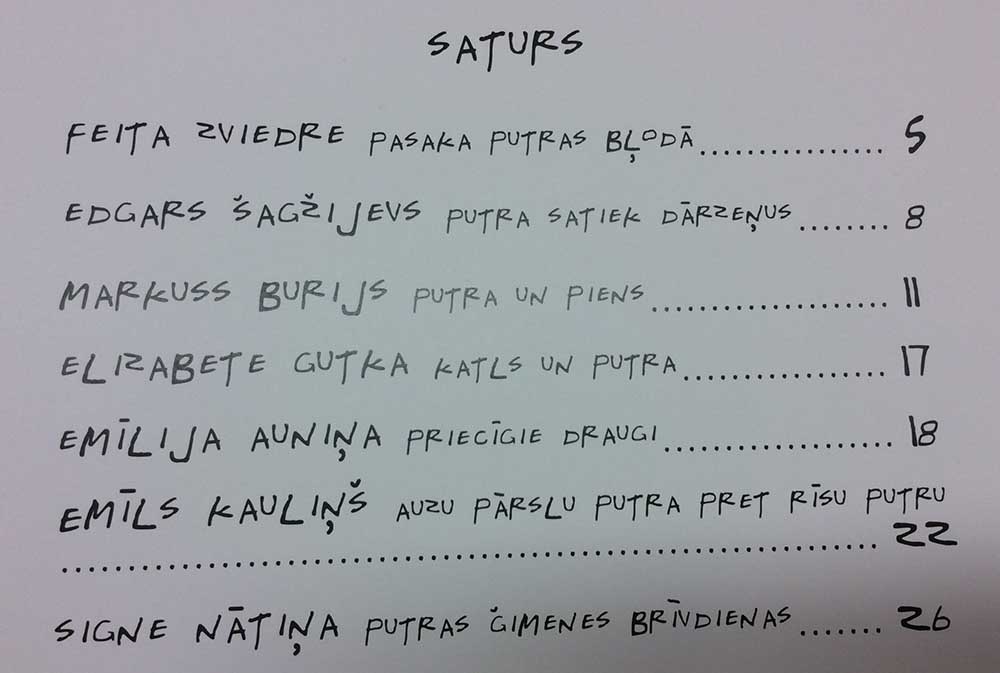 SATURS
FEITA ZVIEDRE PASAKA PUTRAS BĻODĀ.................. 5
EDGARS ŠAGŽIJEVS PUTRA SATIEK DĀRZEŅUS........ 8
MARKUSS BURIJS PUTRA UN PIENS...................... 11
ELIZABETE GUTKA KATLS UN PUTRA................... 17
EMĪLIJA AUNIŅA PRIECĪGIE DRAUGI..................... 18
EMĪLS KAULIŅŠ AUZU PĀRSLU PUTRA PRET RĪSU PUTRU
........................................................................ 22
SIGNE NĀTIŅA PUTRAS ĢIMENES BRĪVDIENAS....... 26